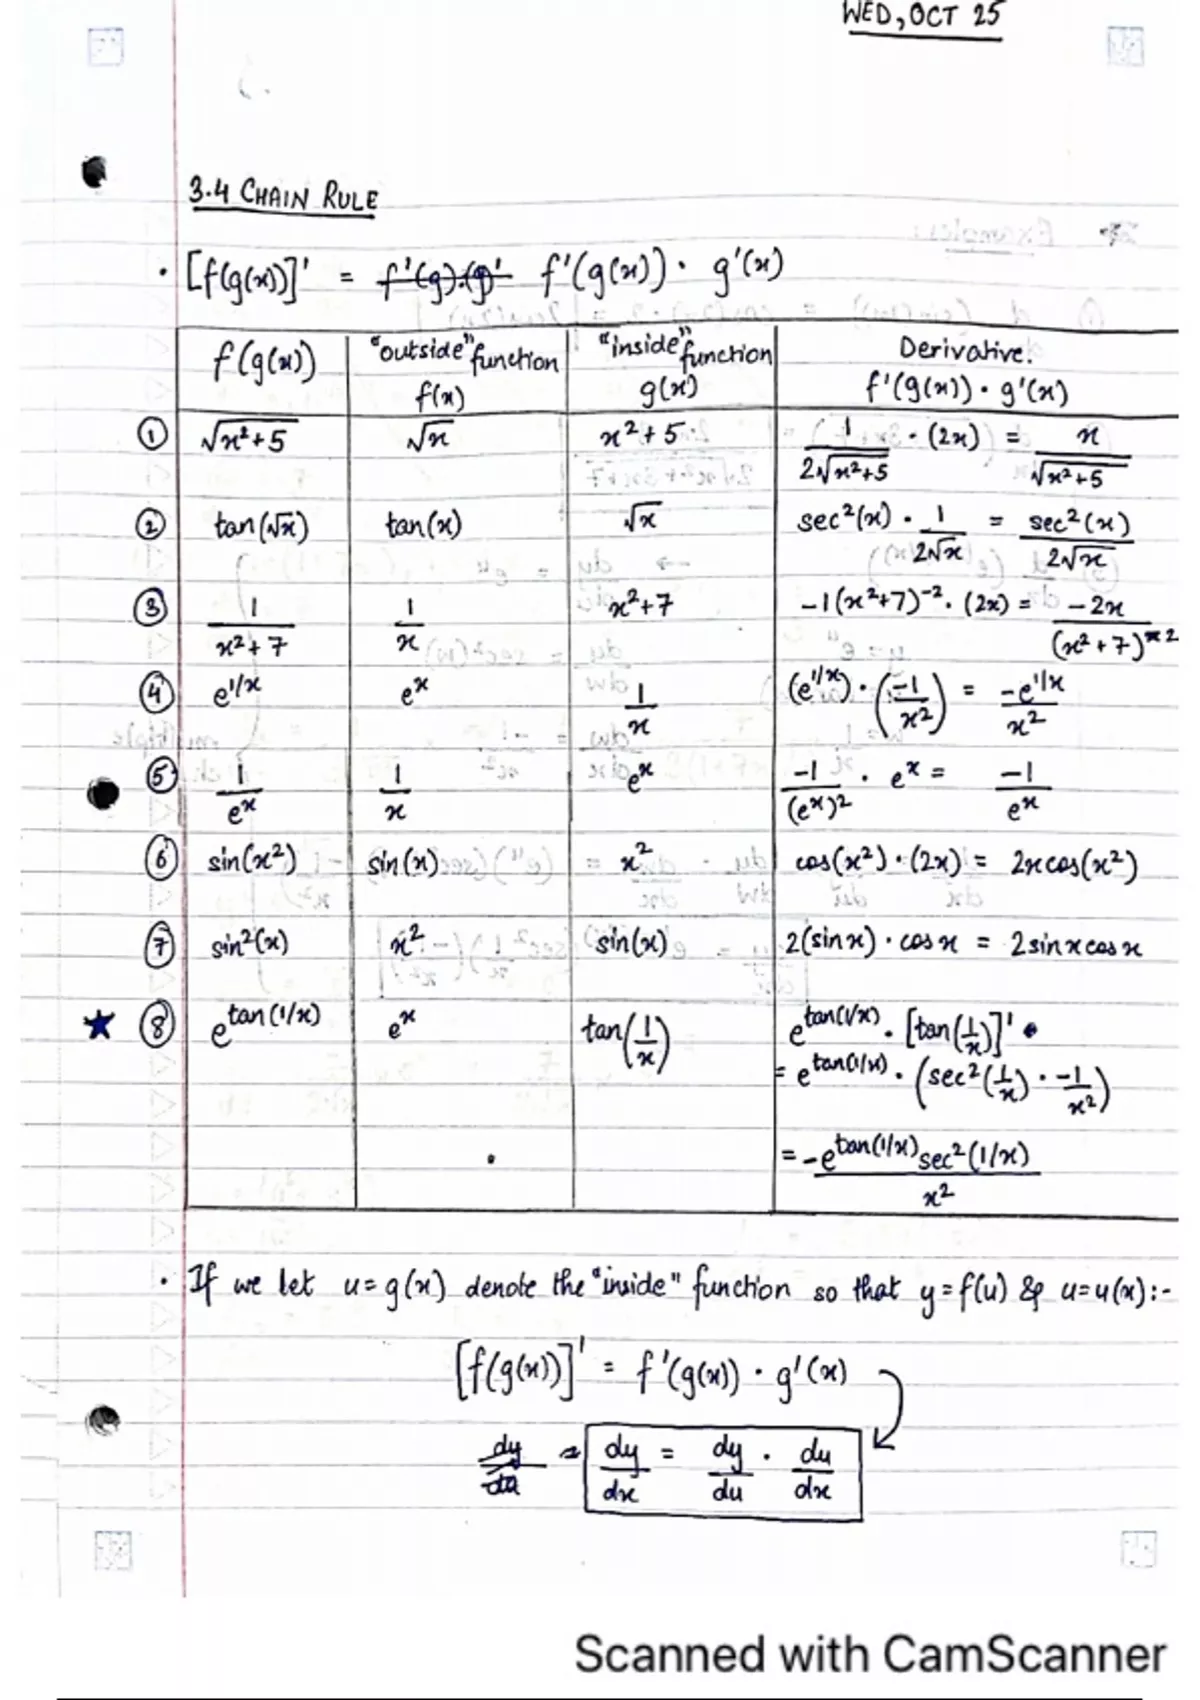 WED, OCT 25
3.4 CHAIN RULE
· [f(g(x))]' = f'(g).(g)' f'(g(x)) · g'(x)
f(g(x)) | "outside" function f(x) | "inside" function g(x) | Derivative. f'(g(x)) · g'(x)
① √(x²+5) | √x | x²+5 | 1/(2√(x²+5)) · (2x) = x/√(x²+5)
② tan(√x) | tan(x) | √x | sec²(x) · 1/(2√x) = sec²(x)/(2√x)
③ 1/(x²+7) | 1/x | x²+7 | -1(x²+7)⁻² · (2x) = -2x/(x²+7)²
④ e^(1/x) | e^x | 1/x | (e^(1/x)) · (-1/x²) = -e^(1/x)/x²
⑤ 1/e^x | 1/x | e^x | -1/(e^x)² · e^x = -1/e^x
⑥ sin(x²) | sin(x) | x² | cos(x²) · (2x) = 2x cos(x²)
⑦ sin²(x) | x² | sin(x) | 2(sin x) · cos x = 2 sin x cos x
★ ⑧ e^(tan(1/x)) | e^x | tan(1/x) | e^(tan(1/x)) · [tan(1/x)]'
= e^(tan(1/x)) · (sec²(1/x) · -1/x²)
= -e^(tan(1/x)) sec²(1/x)/x²
· If we let u = g(x) denote the "inside" function so that y = f(u) & u = u(x):-
[f(g(x))]' = f'(g(x)) · g'(x)
dy/du = dy/dx = dy/du · du/dx
Scanned with CamScanner